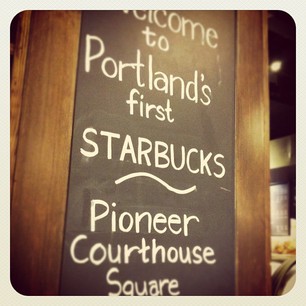 Welcome
to
Portland's
first
STARBUCKS
Pioneer
Courthouse
Square